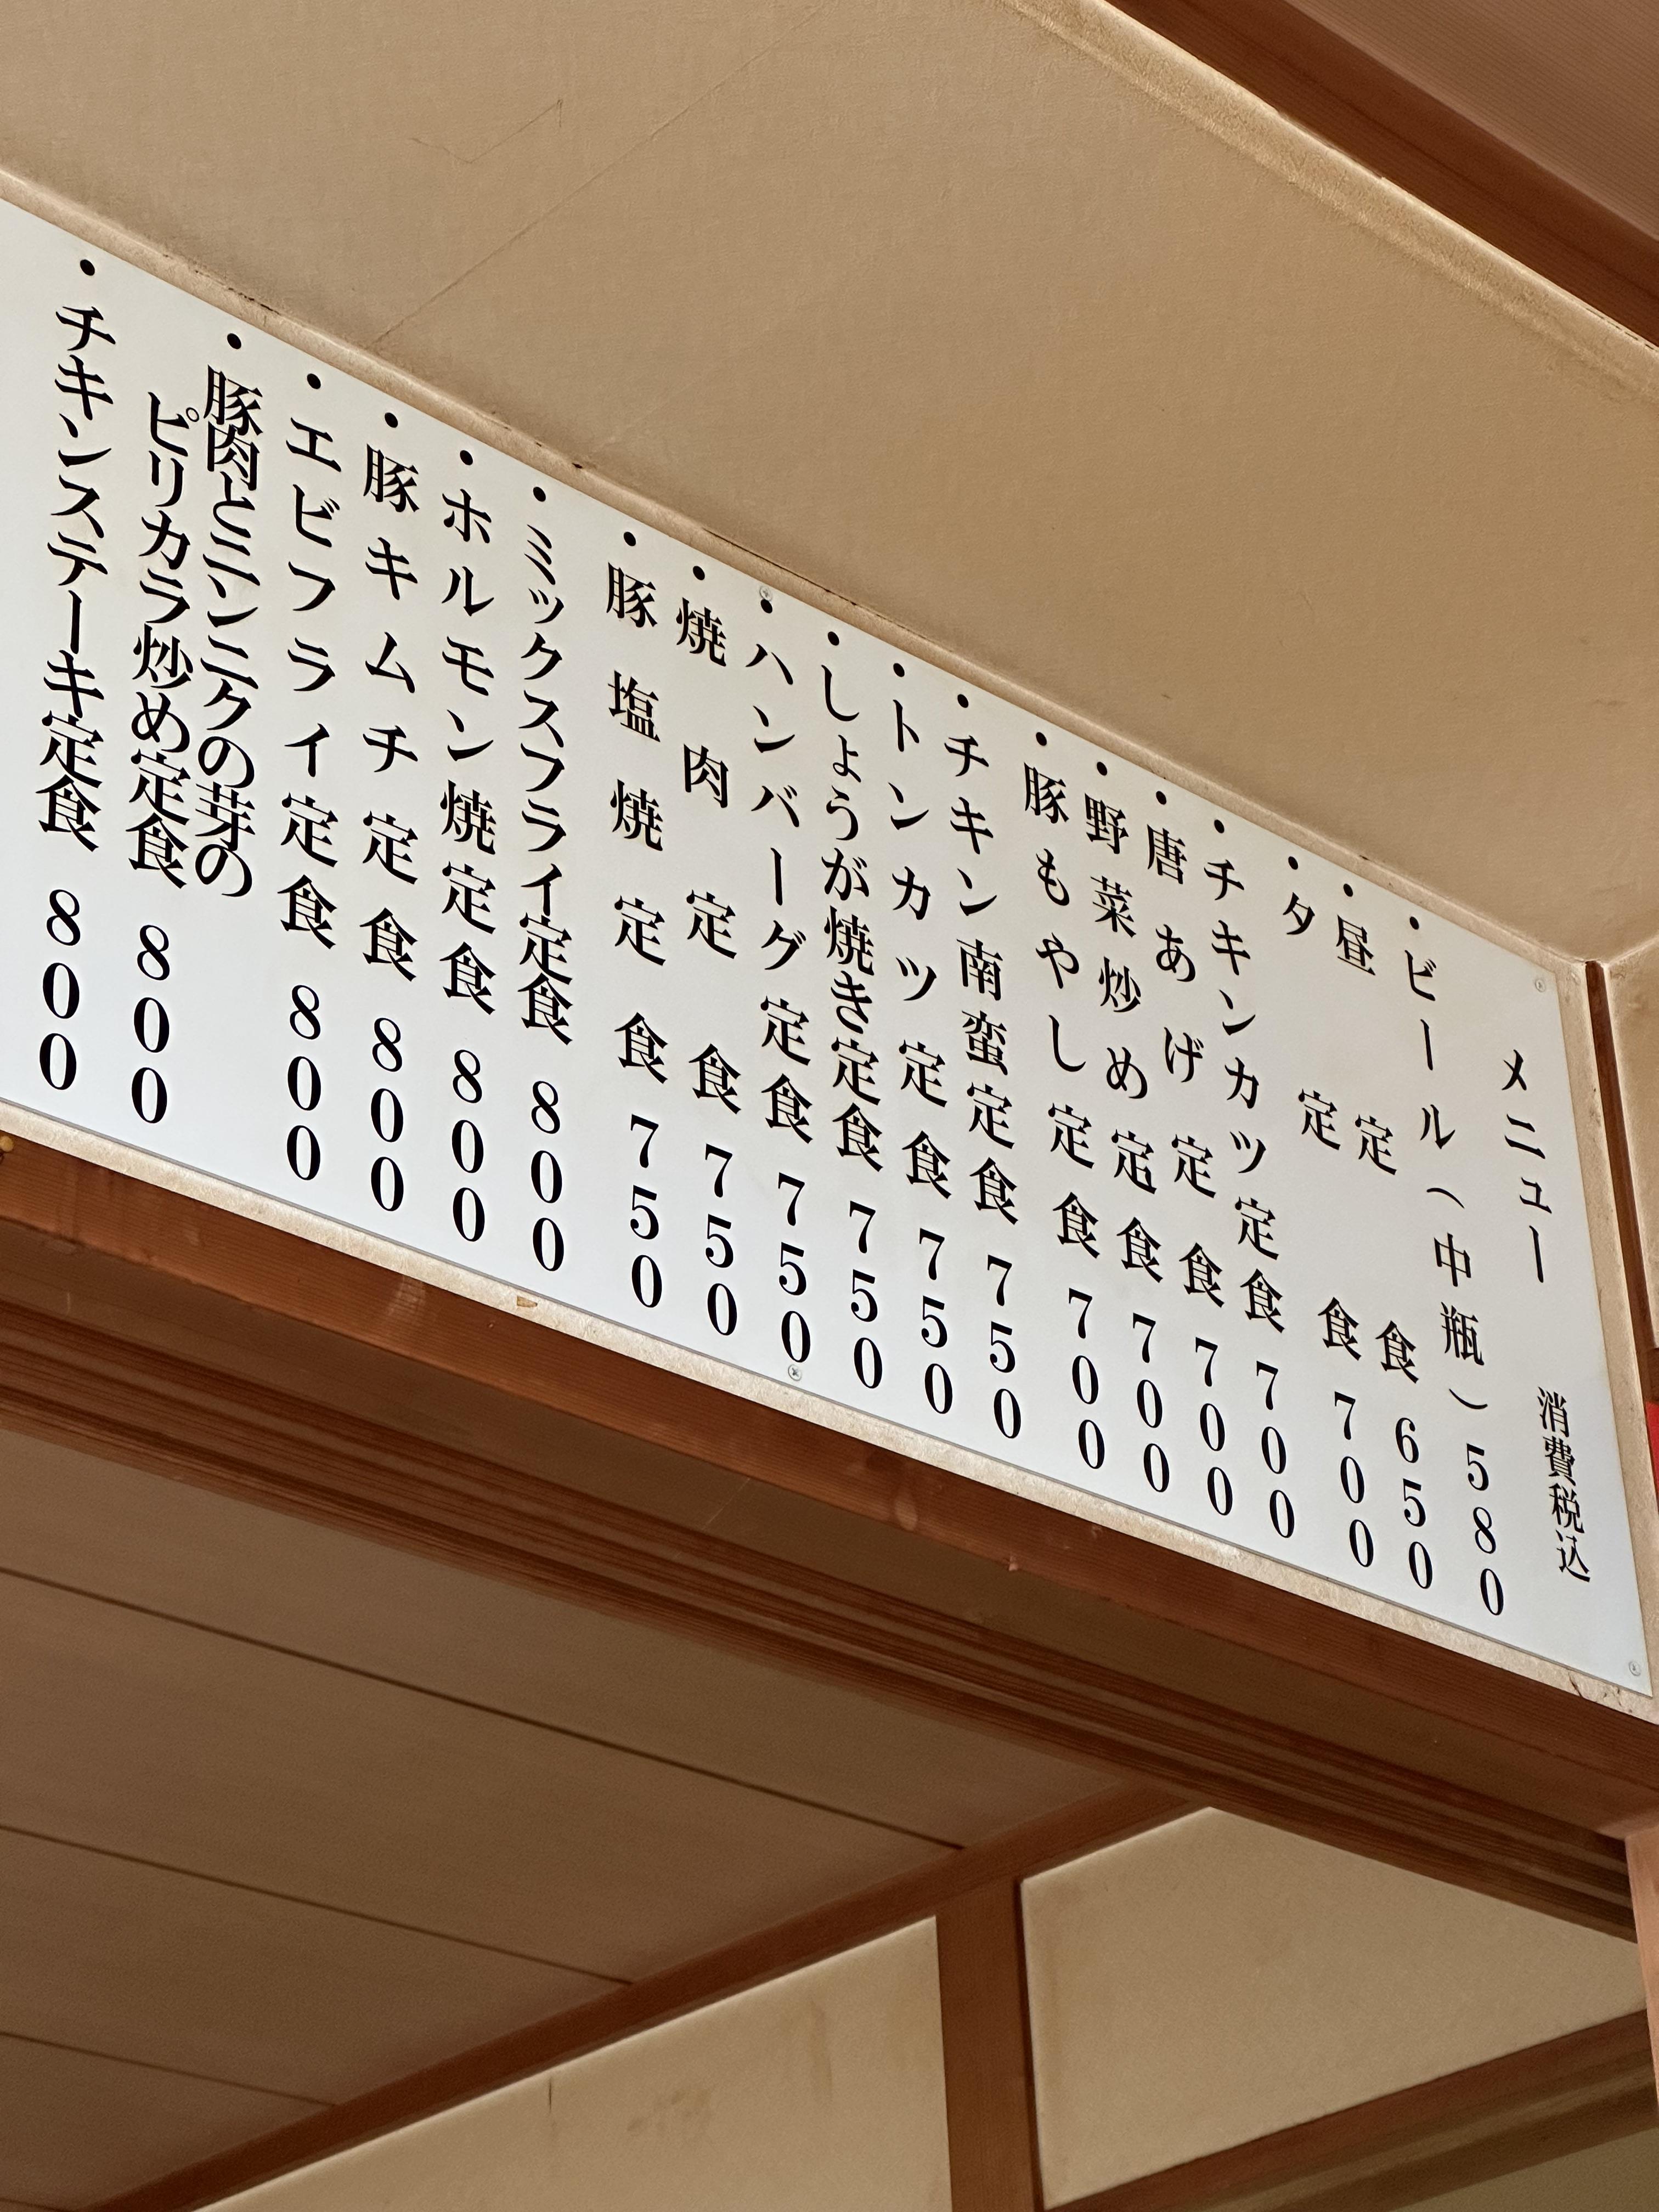 メニュー 消費税込
・ビール（中瓶）580
・昼定食 650
・夕定食 700
・チキンカツ定食 700
・唐あげ定食 700
・野菜炒め定食 700
・豚もやし定食 700
・チキン南蛮定食 750
・トンカツ定食 750
・しょうが焼き定食 750
・ハンバーグ定食 750
・焼肉定食 750
・豚塩焼定食 750
・ミックスフライ定食 800
・ホルモン焼定食 800
・豚キムチ定食 800
・エビフライ定食 800
・豚肉とニンニクの芽の
ピリカラ炒め定食 800
・チキンステーキ定食 800